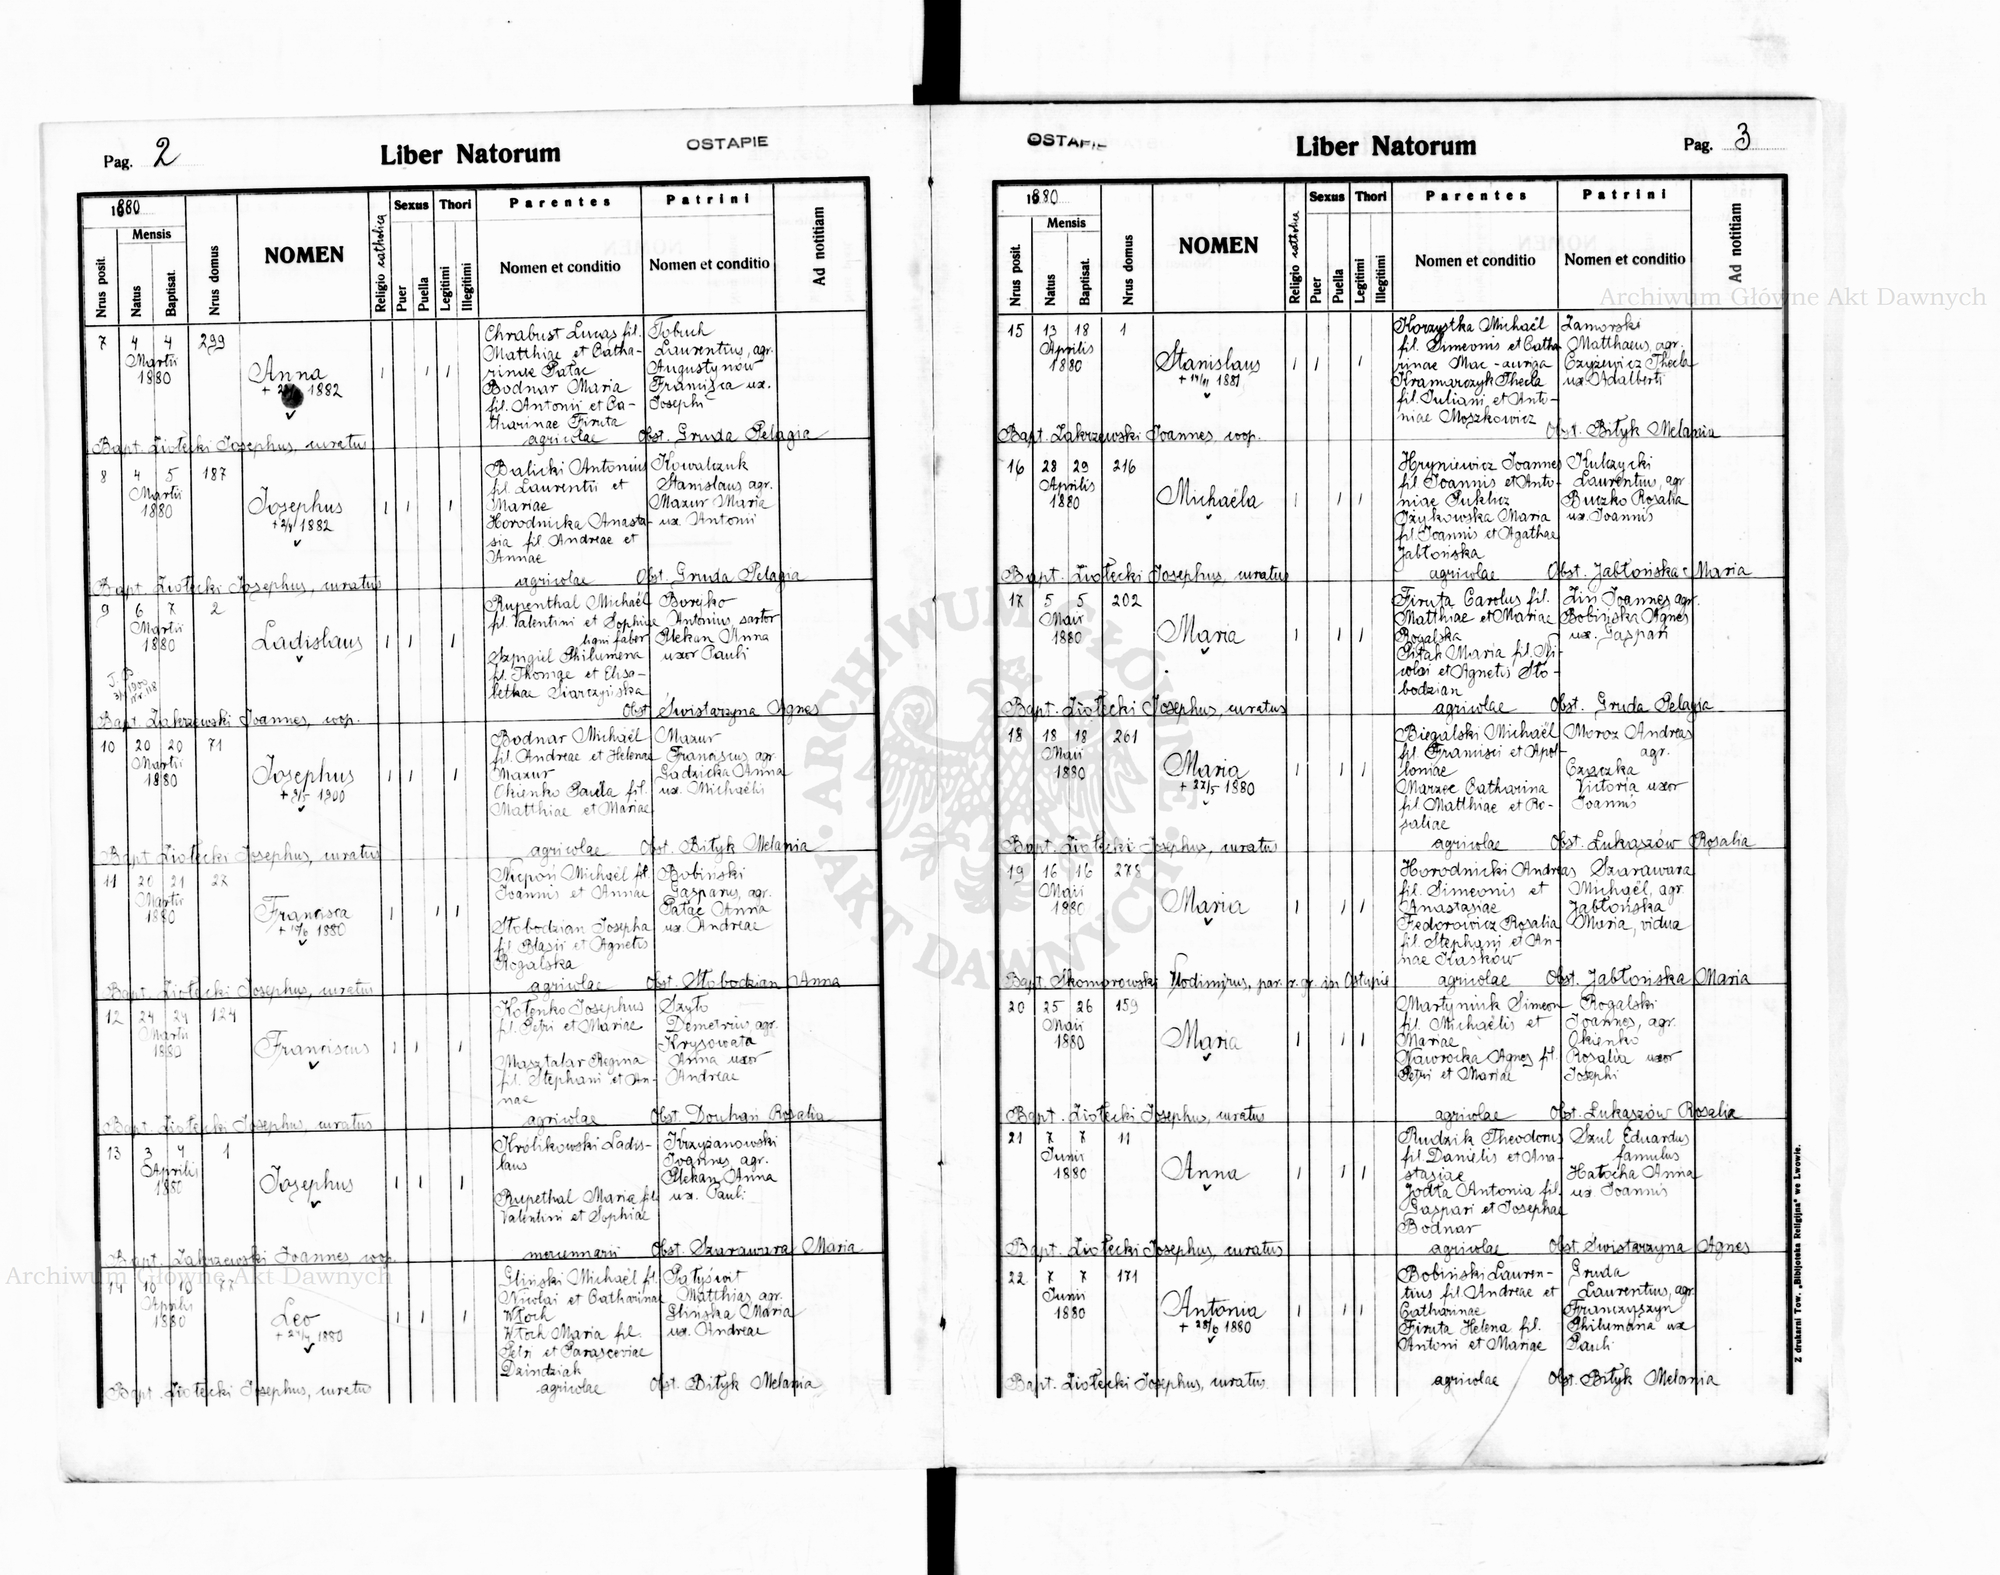 Pag. 2
Liber Natorum
OSTAPIE
1880
Mensis
Nrus posit.
Natus
Baptisat.
Nrus domus
NOMEN
Religio catholica
Sexus
Puer
Puella
Thori
Legitimi
Illegitimi
Parentes
Nomen et conditio
Patrini
Nomen et conditio
Ad notitiam
7 4 4 299
Martii
1880
Anna
1882
Chrabust Lucas fil.
Matthiae et Catha-
rinae Pałac
Bodnar Maria
fil. Antonii et Ca-
tharinae Firuta
agricolae
Tobuch
Laurentius, agr.
Augustynow
Francisca ux.
Josephi
Bapt. Ziołecki Josephus, curatus
Obst. Gruda Pelagia
8 4 5 187
Martii
1880
Josephus
1882
Balicki Antonius
fil. Laurentii et
Mariae
Horodnicka Anasta-
sia fil. Andreae et
Annae
agricolae
Kowalczuk
Stanislaus agr.
Mazur Maria
ux. Antonii
Bapt. Ziołecki Josephus, curatus
Obst. Gruda Pelagia
9 6 7 2
Martii
1880
Ladislaus
Rupenthal Michaël
fil. Valentini et Sophiae
ligni faber
Szpigiel Philumena
fil. Thomae et Elisa-
bethae Siarczyńska
Borejko
Antonius, sartor
Plekan Anna
uxor Pauli
Bapt. Zakrzewski Joannes, coop.
Obst. Świstarzyna Agnes
10 20 20 71
Martii
1880
Josephus
+ 9/5 1900
Bodnar Michaël
fil. Andreae et Helenae
Mazur
Okienko Paula fil.
Matthiae et Mariae
agricolae
Mazur
Franciscus agr.
Gadzicka Anna
ux. Michaëlis
Bapt. Ziołecki Josephus, curatus
Obst. Bityk Melania
11 20 21 27
Martii
1880
Francisca
1880
Niepoń Michaël fil.
Joannis et Annae
Słobodzian Josepha
fil. Blasii et Agnetis
Rogalska
agricolae
Bobiński
Gasparus, agr.
Pałac Anna
ux. Andreae
Bapt. Ziołecki Josephus, curatus
Obst. Słobodzian Anna
12 24 24 124
Martii
1880
Franciscus
Kotenko Josephus
fil. Petri et Mariae
Masztalar Regina
fil. Stephani et An-
nae
agricolae
Szyło
Demetrius, agr.
Krysowata
Anna uxor
Andreae
Bapt. Ziołecki Josephus, curatus
Obst. Douhań Rosalia
13 3 4 1
Aprilis
1880
Josephus
Królikowski Ladis-
laus
Rupethal Maria fil.
Valentini et Sophiae
mercennarii
Krzyżanowski
Joannes, agr.
Plekan Anna
ux. Pauli
Bapt. Zakrzewski Joannes coop.
Obst. Szarawara Maria
14 10 10 77
Aprilis
1880
Leo
1880
Gliński Michaël fil.
Nicolai et Catharinae
Włoch
Włoch Maria fil.
Petri et Parasceviae
Dzindziak
agricolae
Patyświt
Matthias agr.
Glińska Maria
ux. Andreae
Bapt. Ziołecki Josephus, curatus
Obst. Bityk Melania
OSTAPIE
Liber Natorum
Pag. 3
1880
Mensis
Nrus posit.
Natus
Baptisat.
Nrus domus
NOMEN
Religio catholica
Sexus
Puer
Puella
Thori
Legitimi
Illegitimi
Parentes
Nomen et conditio
Patrini
Nomen et conditio
Ad notitiam
15 13 18 1
Aprilis
1880
Stanislaus
1881
Korzystka Michaël
fil. Simeonis et Catha
rinae Mac - auriga
Kramarczyk Thecla
fil. Juliani et Anto-
niae Moszkowicz
Zamorski
Matthaeus, agr.
Czyżewicz Thecla
ux. Adalberti
Bapt. Zakrzewski Joannes coop.
Obst. Bityk Melania
16 28 29 216
Aprilis
1880
Michaëla
Hryniewicz Joannes
fil. Joannis et Anto-
niae Puklicz
Iżykowska Maria
fil. Joannis et Agathae
Jabłońska
agricolae
Kulczycki
Laurentius, agr
Buczko Rosalia
ux. Joannis
Bapt. Ziołecki Josephus, curatus
Obst. Jabłońska Maria
17 5 5 202
Maii
1880
Maria
Firuta Carolus fil.
Matthiae et Mariae
Rogalska
Pitak Maria fil. Ni-
colai et Agnetis Sło-
bodzian
agricolae
Lin Joannes, agr.
Bobińska Agnes
ux. Gaspari
Bapt. Ziołecki Josephus, curatus
Obst. Gruda Pelagia
18 18 18 261
Maii
1880
Maria
+ 22/5 1880
Biegalski Michaël
fil. Francisci et Apol-
loniae
Marzec Catharina
fil. Matthiae et Ro-
saliae
agricolae
Moroz Andreas
agr.
Czaczka
Victoria uxor
Joannis
Bapt. Ziołecki Josephus, curatus
Obst. Łukaszów Rosalia
19 16 16 278
Maii
1880
Maria
Horodnicki Andreas
fil. Simeonis et
Anastasiae
Fedorowicz Rosalia
fil. Stephani et An-
nae Kraśków
agricolae
Szarawara
Michaël, agr.
Jabłońska
Maria, vidua
Bapt. Skomorowski Vlodimirus, par. r. gr. in Ostapie
Obst. Jabłońska Maria
20 25 26 159
Maii
1880
Maria
Martyniuk Simeon
fil. Michaëlis et
Mariae
Nawrocka Agnes fil.
Petri et Mariae
agricolae
Rogalski
Joannes, agr.
Okienko
Rosalia uxor
Josephi
Bapt. Ziołecki Josephus, curatus
Obst. Łukaszów Rosalia
21 7 7 11
Junii
1880
Anna
Rudzik Theodorus
fil. Danielis et Ana-
stasiae
Jodła Antonia fil.
Gaspari et Josephae
Bodnar
agricolae
Szul Eduardus
famulus
Hałocha Anna
ux Joannis
Bapt. Ziołecki Josephus, curatus
Obst. Świstarzyna Agnes
22 7 7 171
Junii
1880
Antonia
+ 28/6 1880
Bobiński Lauren-
tius fil. Andreae et
Catharinae
Firuta Helena fil.
Antoni et Mariae
agricolae
Gruda
Laurentius, agr.
Franczyszyn
Philumena ux
Pauli
Bapt. Ziołecki Josephus, curatus
Obst. Bityk Melania
Z drukarni Tow. „Biblioteka Religijna" we Lwowie.
Archiwum Główne Akt Dawnych
Archiwum Główne Akt Dawnych
ARCHIWUM GŁÓWNE AKT DAWNYCH